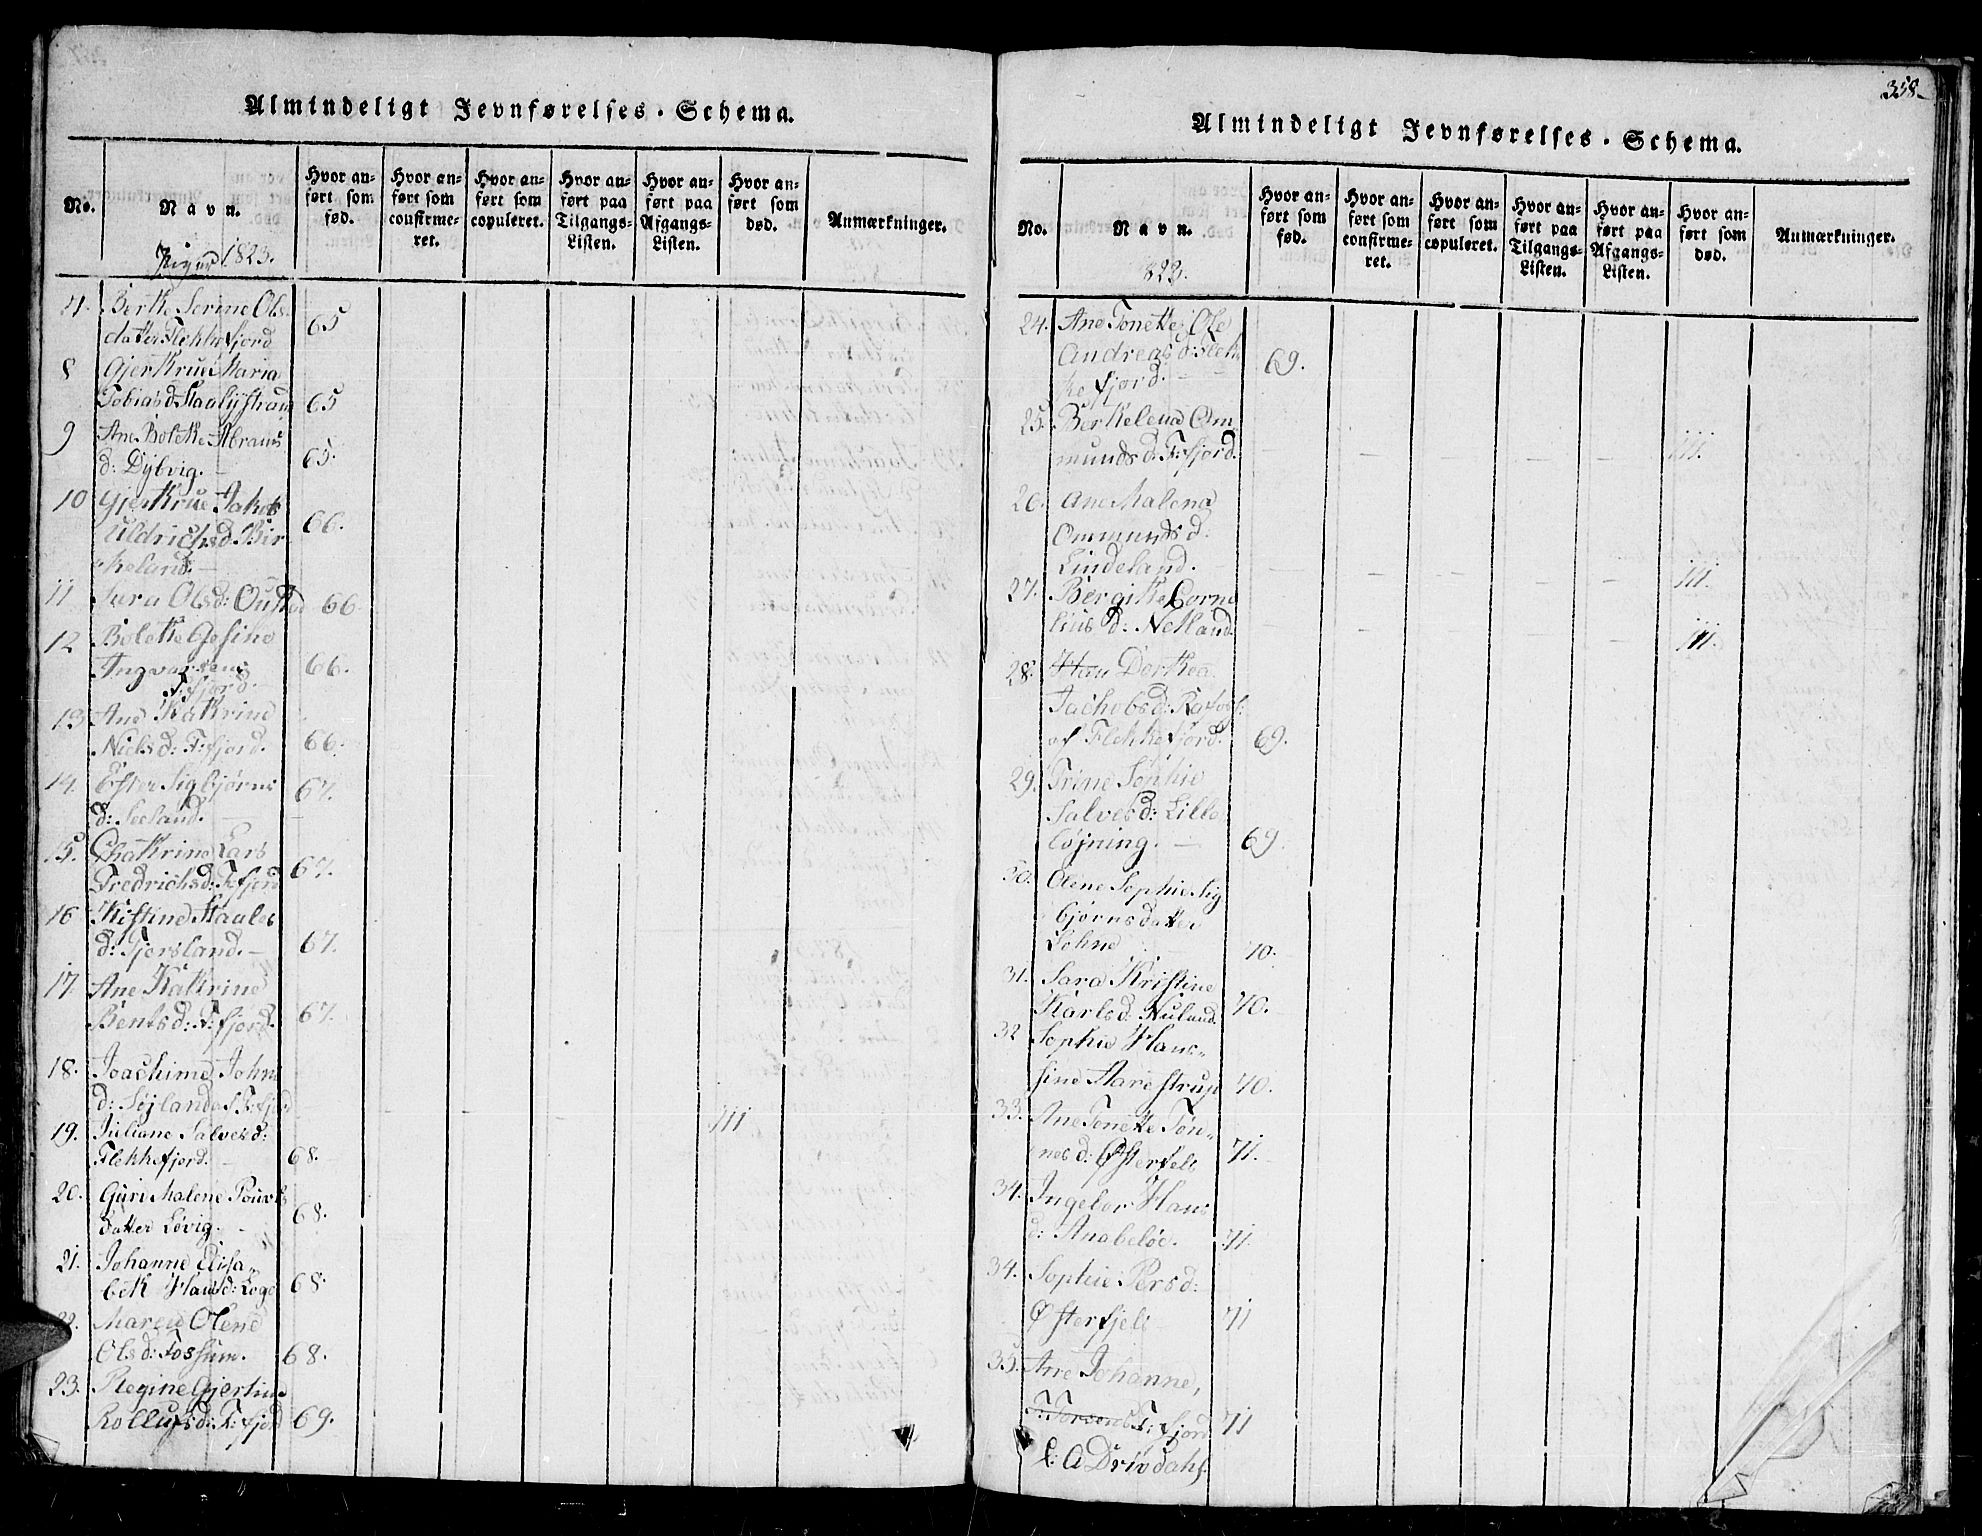 358
Almindeligt Jevnførelses-Schema.
No.
Navn.
Hvor an-
ført som
fød.
Hvor an-
ført som
confirme-
ret.
Hvor an-
ført som
copuleret.
Hvor an-
ført paa
Tilgangs-
Listen.
Hvor an-
ført paa
Afgangs-
Listen.
Hvor an-
ført som
død.
Anmærkninger.
Piger 1823.
Berthe Serine Ols
datter Flekkefjord 65
8 Gjertrud Maria
Tobiasd Staalystrøm 65
9 Ane Bolette Abrams
d: Dybvig. 65.
10 Gjertrue Jakob
Uldrichsd. Bir- 66.
keland.
11 Sara Olsd: Oustad 66.
12 Bolette Gesine
Ingvarsens 66.
F:fjord.
13 Ane Katrine
Nielsd: F:fjord. 66.
14. Ester Sigbjørns 67.
d: Seeland.
15. Chatrine Lars
Fredrichsd: F:fjord 67.
16 Kistine Staales
d: Tjersland. 67.
17. Ane Katrine
Bentsd: F:fjord. 67.
18. Joachime Johns
d: Søjland af F:fjord 111
19. Juliane Salvesd:
Flekkefjord. 68.
20. Guri Malene Pouvls
datter Løvig. 68.
21. Johanne Elisa-
beth Hansd: Loge 68
22. Maren Olene
Olsd: Fossum. 68.
23. Regine Gjertine
Rollufsd: F:fjord 69.
Almindeligt Jevnførelses-Schema.
No.
Navn.
Hvor an-
ført som
fød.
Hvor an-
ført som
confirme-
ret.
Hvor an-
ført som
copuleret.
Hvor an-
ført paa
Tilgangs-
Listen.
Hvor an-
ført paa
Afgangs-
Listen.
Hvor an-
ført som
død.
Anmærkninger.
823.
24. Ane Tonette Ole
Andreasd: Flek 69.
kefjord.
25. Berthelena Om
mundsd: F:fjord. 111.
26. Ane Malena
Ommundsd:
Lindeland. 111.
27. Bergitte Corne
lius d: Netland. 111.
28. Dorthea
Jachobsd: Rafos
af Flekkefjord. 69.
29. Trine Sophie
Salvesd: Lille
løjning. 69.
30. Olene Sophie Sig
bjørnsdatter
Lohne 70.
31. Sara Kristine
Karlsd: Nuland. 70.
32 Sophie Hans-
sine Aarestrup 70.
33. Ane Tonette Tøn-
nesd: Østerfell 71.
34. Ingebor Hans
d: Anabeløe. 71.
34. Sophie Persd:
Østerfjell 71
35. Ane Johanne,
F:fjord 71
L: A Drivdahl.